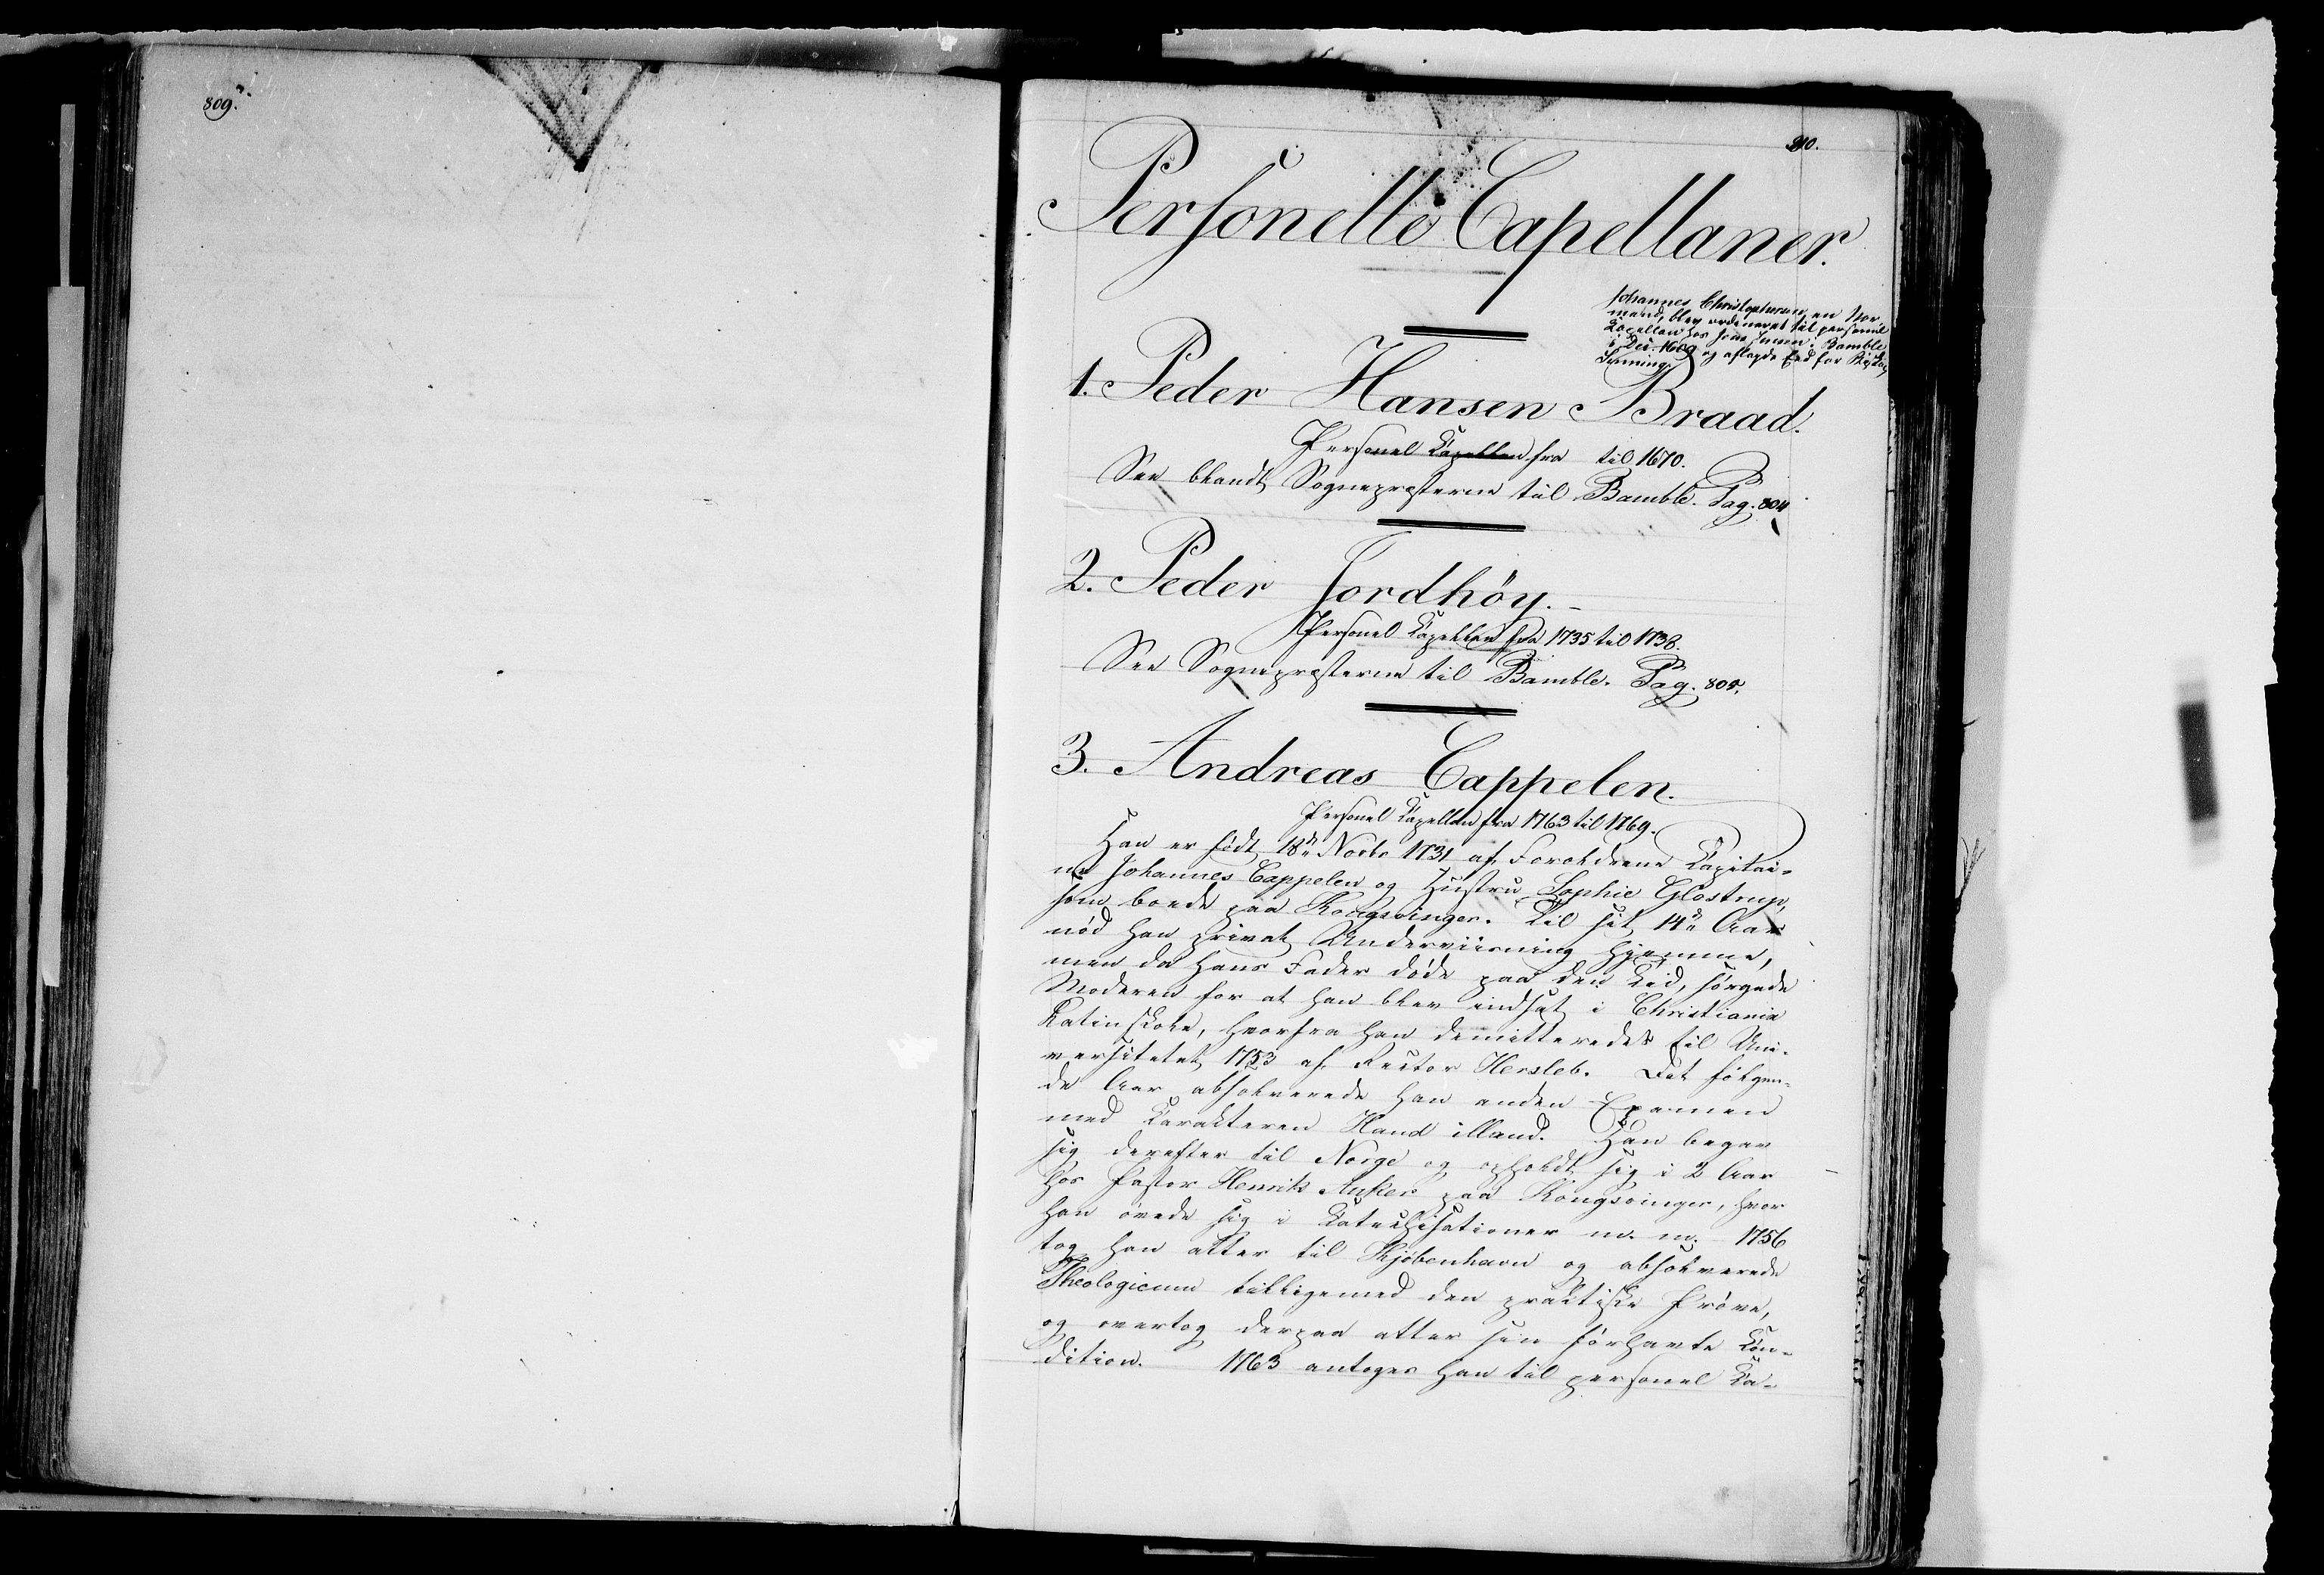 809.
810.
Personelle Capellaner.
Johannes Christophersen, en Nor-
mand, blev ordineret til personel
Capellan hos Jens Jensen i Bamble
i Dec. 1609 og aflagde Ed for Biskop
1. Peder Hansen Braad.
Personel Kapellan fra til 1670.
See blandt Sognepræsterne til Bamble. Pag. 804
2. Peder Jordhöy.
Personel Kapellan fra 1735 til 1738.
See Sognepræsterne til Bamble. Pag. 805.
3. Andreas Cappelen.
Personel Kapellan fra 1763 til 1769.
Han er født 18de Novbr 1731 af Forældrene Kapitai-
ne Johannes Cappelen og Hustru Sophie Glostrup,
som boede paa Kongsvinger. Til sit 14de Aar
nød han privat Underviisning hjemme,
men da hans Fader døde paa den Tid, sørgede
Moderen for at han blev indsat i Christiania
Latinskole, hvorfra han demitteredes til Uni-
versitetet 1753 af Rector Hersleb. Det følgen-
de Aar absolverede han anden Examen
med Karakteren Haud illaud. Han begav
sig derefter til Norge og opholdt sig i 2 Aar
hos Pastor Henrik Anker paa Kongsvinger, hvor
han øvede sig i Katechisationer m. m. 1756
tog han atter til Kjøbenhavn og absolverede
Theologicum tilligemed den praktiske Prøve,
og overtog derpaa atter sin forhavte Kon-
dition. 1763 antoges han til personel Ka-